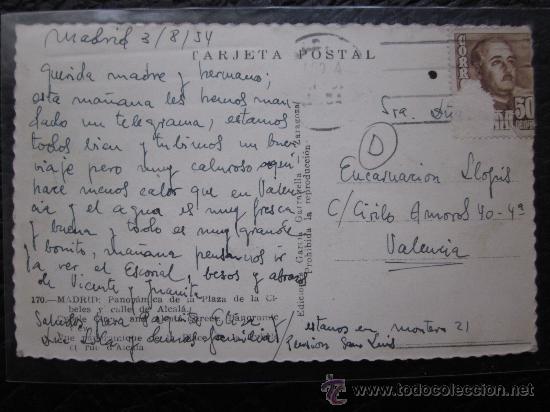 Madrid 3/8/54
TARJETA POSTAL
CORR
50
Querida madre y hermano;
esta mañana les hemos man-
dado un telegrama, estamos
todos bien y tubimos un buen
viaje pero muy caluroso aqui
hace menos calor que en Valen
cia y el agua es muy fresca
y buena y todo es muy grande
y bonito, mañana pensamos ir
a ver el Escorial, besos y abrazos
de Vicente y Juanita
Sra. Dña
D
Encarnacion Llopis
C/ Cirilo Amoros 40-4ª
Valencia
Ediciones García Garrabella - Zaragoza
Prohibida la reproducción
170.—MADRID: Panorámica de la Plaza de la Ci-
beles y calle de Alcalá.
Saludos para
familia
estamos en montera 21
Pension San Luis
todocoleccion.net